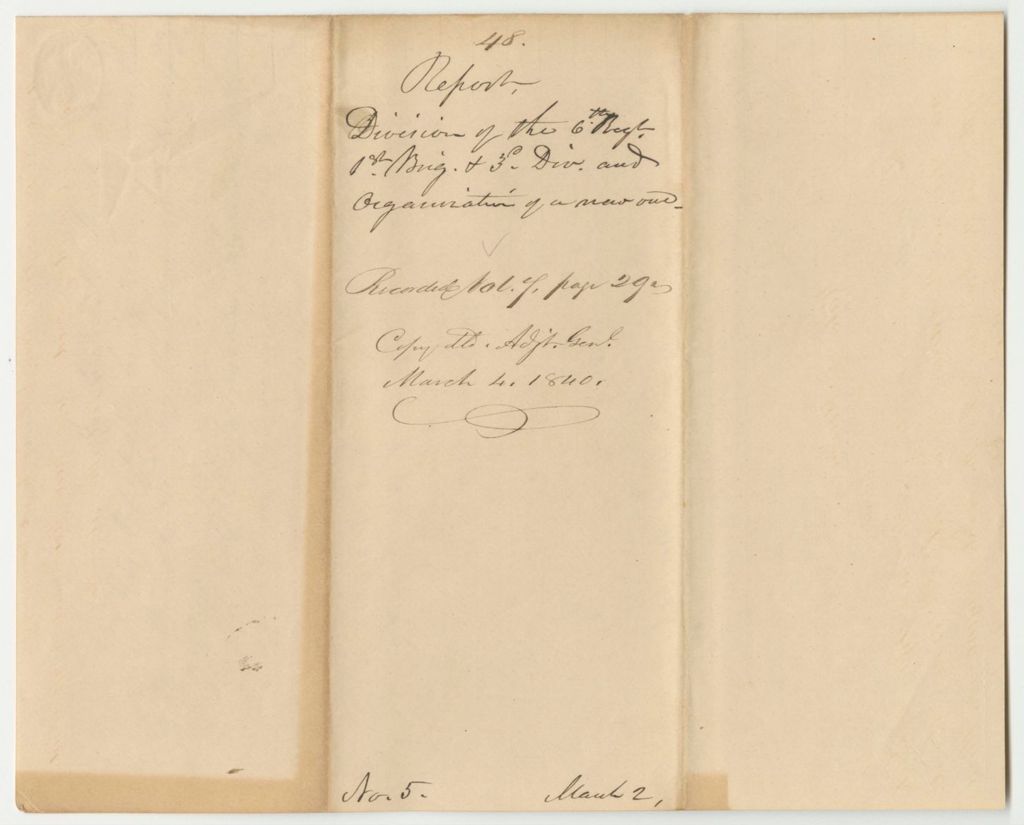 48.
Report,
Division of the 6th Regt.
1st Brig. & 3d. Div. and
Organization of a new one_
Recorded Vol. 7, page 29
Copy to Adjt. Genl.
March 4. 1840.
No. 5.
March 2,